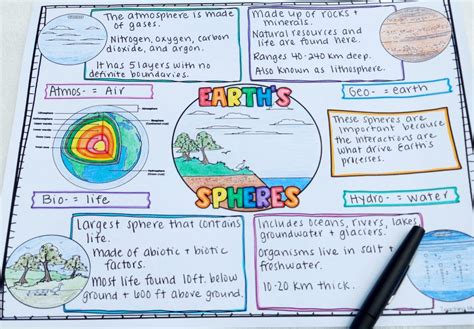 The atmosphere is made
of gases.
Nitrogen, oxygen, carbon
dioxide, and argon.
It has 5 layers with no
definite boundaries.
Made up of rocks +
minerals.
Natural resources and
life are found here.
Ranges 40-240 km deep.
Also known as lithosphere.
Atmos- = Air
EARTH'S
SPHERES
Geo- = earth
These spheres are
important because
the interactions are
what drive Earth's
processes.
Bio- = life
Hydro- = water
Largest sphere that contains
life.
Made of abiotic + biotic
factors.
Most life found 10ft. below
ground + 600 ft above ground.
Includes oceans, rivers, lakes,
groundwater + glaciers.
Organisms live in salt +
freshwater.
10-20 km thick.